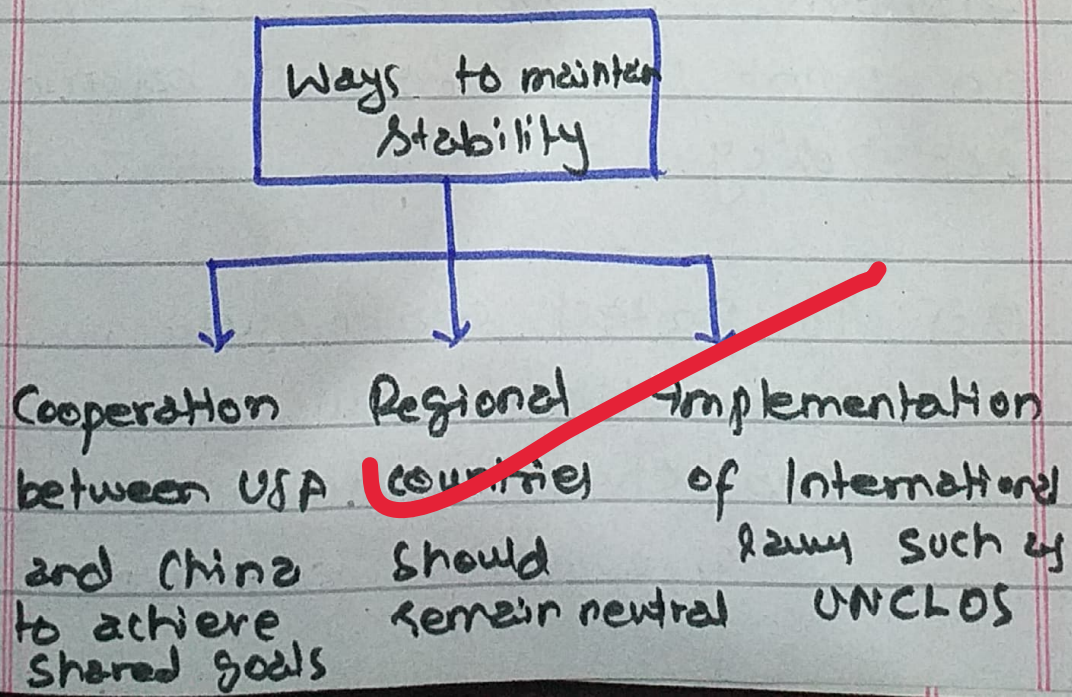 Ways to maintain
stability
Cooperation
between USA
and China
to achieve
shared goals
Regional
countries
should
remain neutral
Implementation
of International
laws such as
UNCLOS